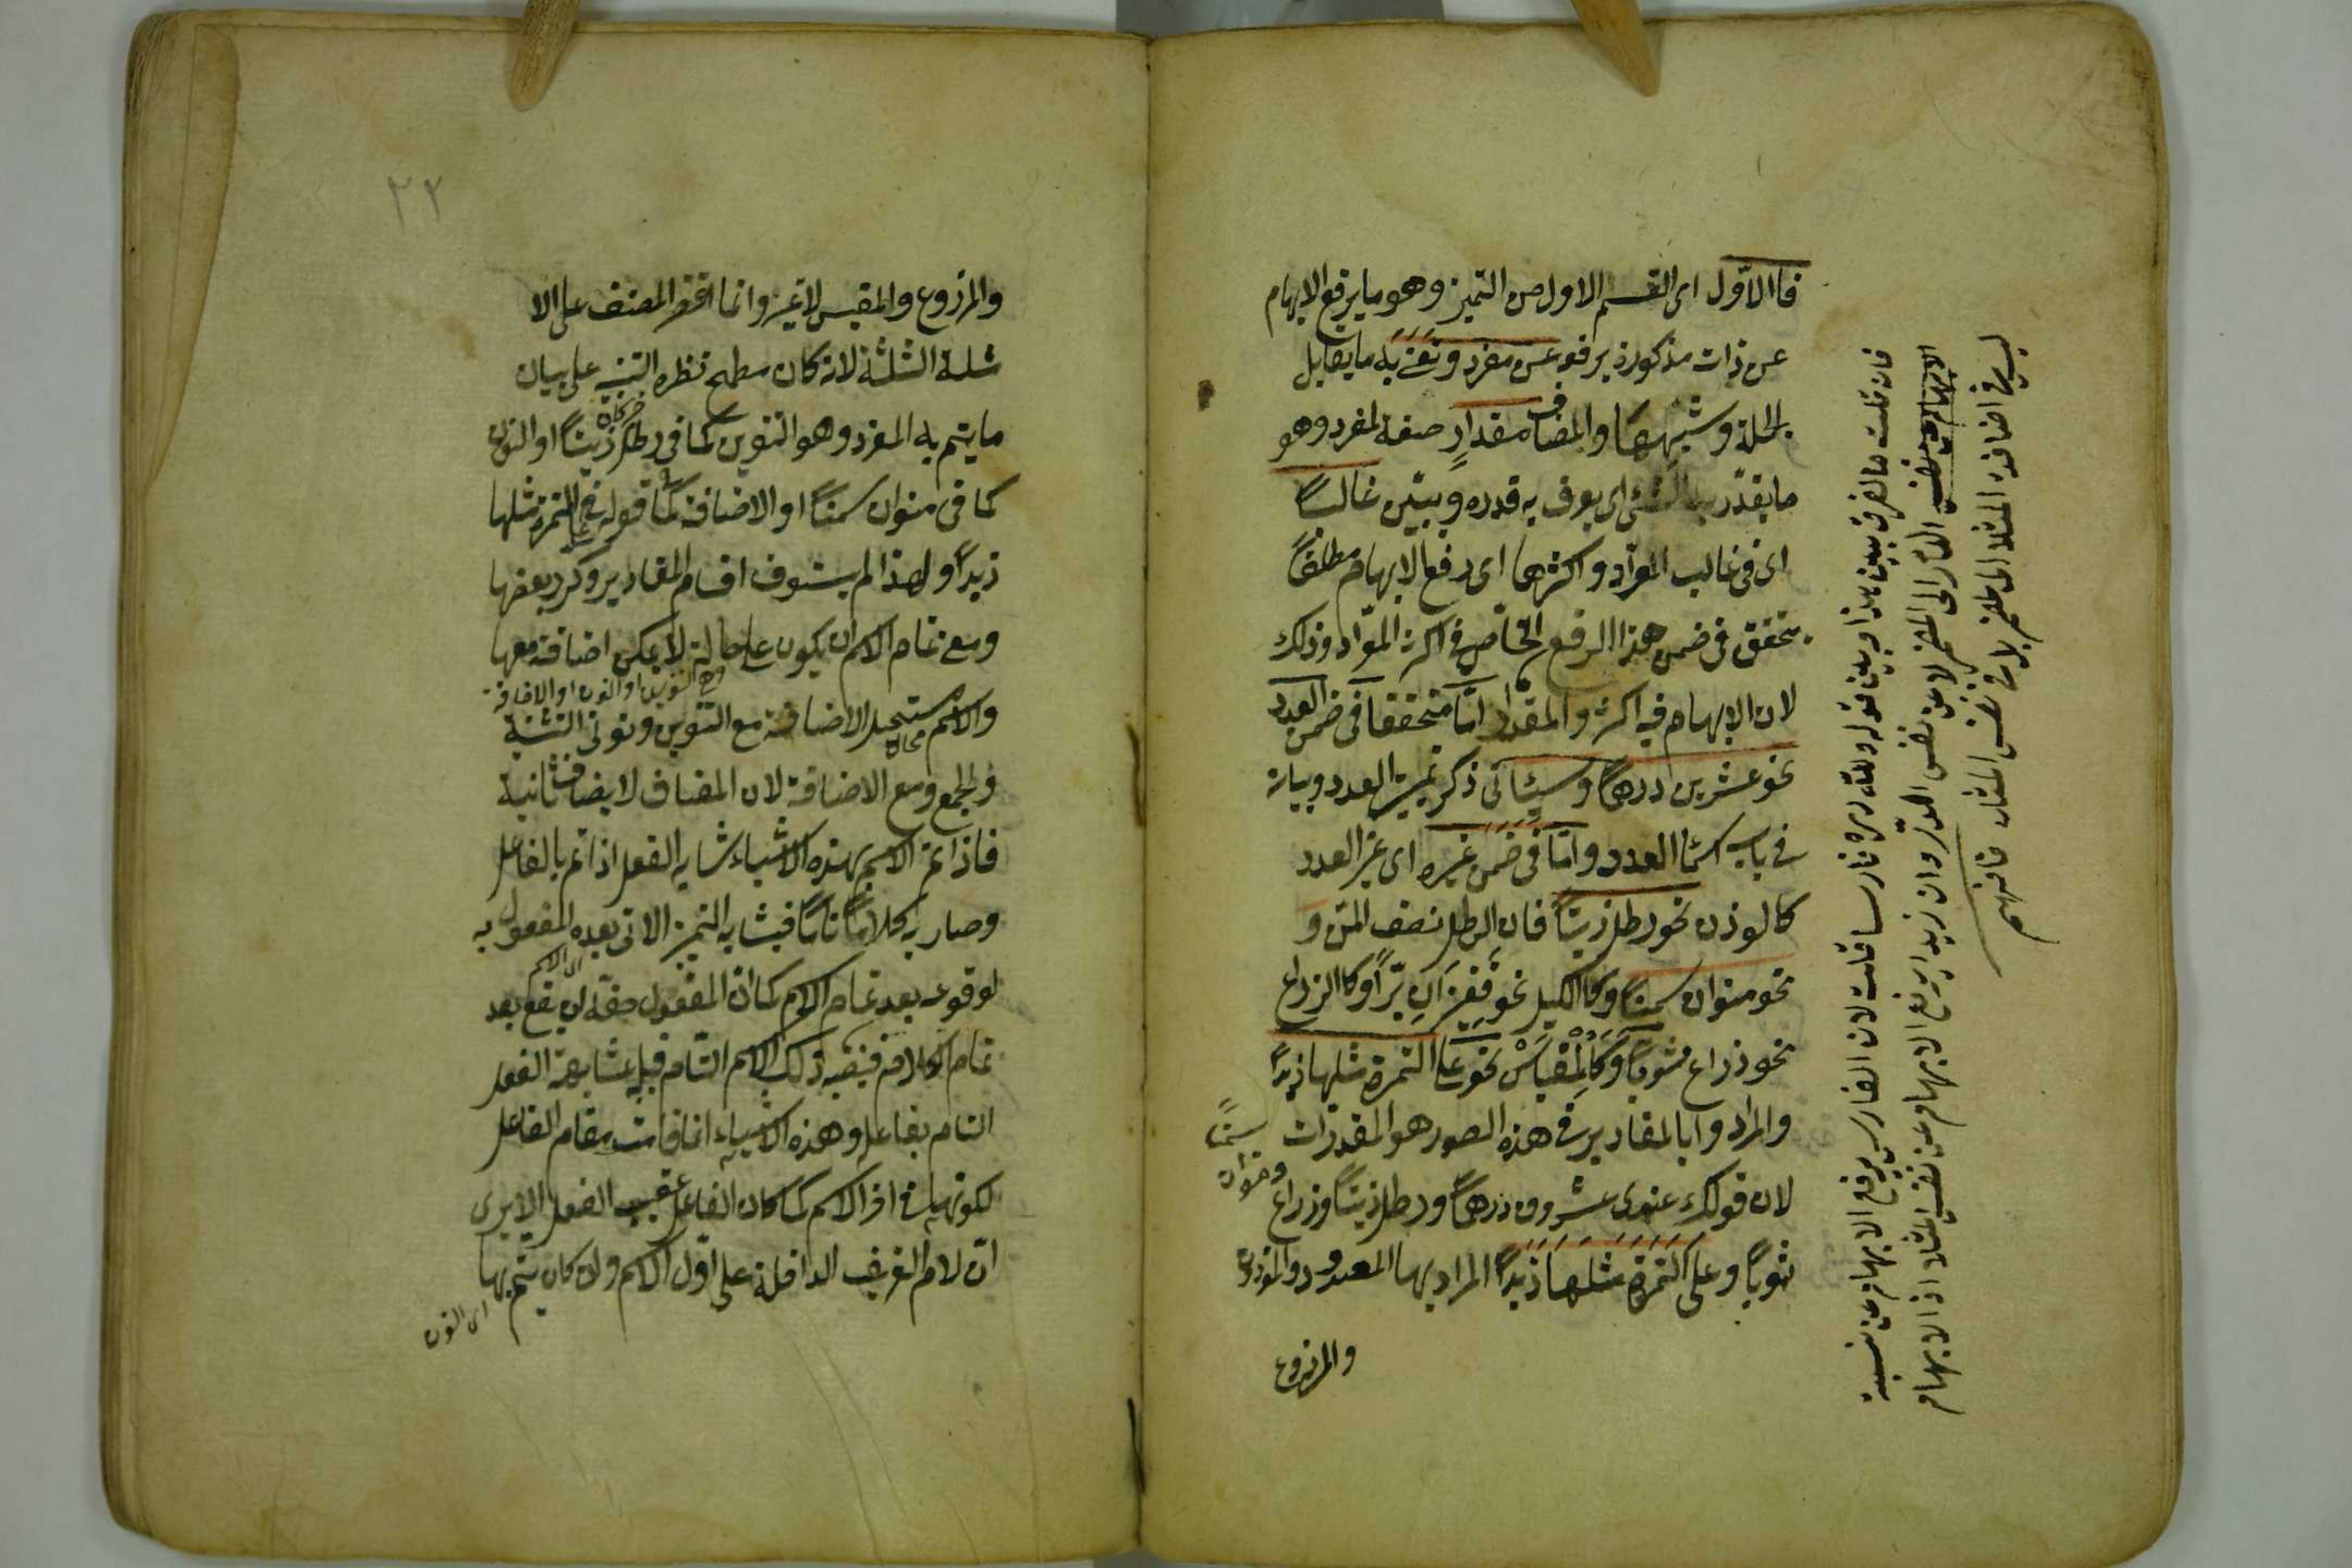 فالاول اى القسم الاول من التميز وهو ما يرفع الابهام
عن ذات مذكورة يرفعه عن مفرد ونعنى به ما يقابل
الجملة وشبهها والمضاف مقدار صفة لمفرد وهو
ما يقدر به الشئ اى يعرف به قدره ويبين غالبًا
اى فى غالب المواد واكثرها اى رفع الابهام مطلقًا
يتحقق فى ضمن هذا الرفع الخاص فى اكثر المواد وذلك
لان الابهام فيه اكثر والمقدار امّا متحققا فى ضمن العدد
نحو عشرين درهمًا وسيأتى ذكر تميز العدد وبيانه
فى باب اسماء العدد وامّا فى ضمن غيره اى غير العدد
كالوزن نحو رطل زيتًا فان الرطل نصف المن و
نحو منوان سمنًا وكالكيل نحو قفيزان برًّا وكالذراع
نحو ذراع ثوبًا وكالمقياس نحو على التمرة مثلها زبدًا
والمراد بالمقادير فى هذه الصور هو المقدرات
لان قولك عندى عشرون درهمًا ورطل زيتًا وذراع
ومنوان سمنًا
ثوبًا وعلى التمرة مثلها زبدًا المراد بها المعدود والموزون
والمزروع
فان قلت ما الفرق بين هذا وبين قوله ولله دره فارسا قلت لان الفارس يرفع الابهام عن نسبة
الدر الى الضمير لا عن نفس الدر وان زيدا يرفع الابهام عن نفس المثل اذ الابهام
ليس فى اضافة المثل الى الضمير بل فى نفس المثل فافهم
٢٢
والمزروع والمقيس لا غير وانما اقتصر المصنف على الا
مثلة الثلثة لانه كان مطمح نظره التنبيه على بيان
ما يتم به المفرد وهو التنوين كما فى رطل زيتًا او النون
كما فى منوان سمنًا او الاضافة كما فى قوله على التمرة مثلها
زبدًا ولهذا لم يستوف اقسام المقادير وكرر بعضها
ومعنى تمام الاسم ان يكون على حالة لا يمكن اضافته معها
مع التنوين او النون او الاضافة
والاسم مستحيل الاضافة مع التنوين ونونى التثنية
والجمع ومع الاضافة لان المضاف لا يضاف ثانية
فاذا تم الاسم بهذه الاشياء شابه الفعل اذا تم بالفاعل
وصار به كلامًا تامًا فيشابه التميز الاتى بعده المفعول به
لوقوعه بعد تمام الاسم كما ان المفعول حقه ان يقع بعد
تمام الكلام فينصبه ذلك الاسم التام قبله لمشابهته الفعل
التام بفاعله وهذه الاشياء انما قامت مقام الفاعل
لكونها فى اخر الاسم كما كان الفاعل عقيب الفعل الا يرى
ان لام التعريف الداخلة على اول الاسم وان كان يتم بها
اى النون